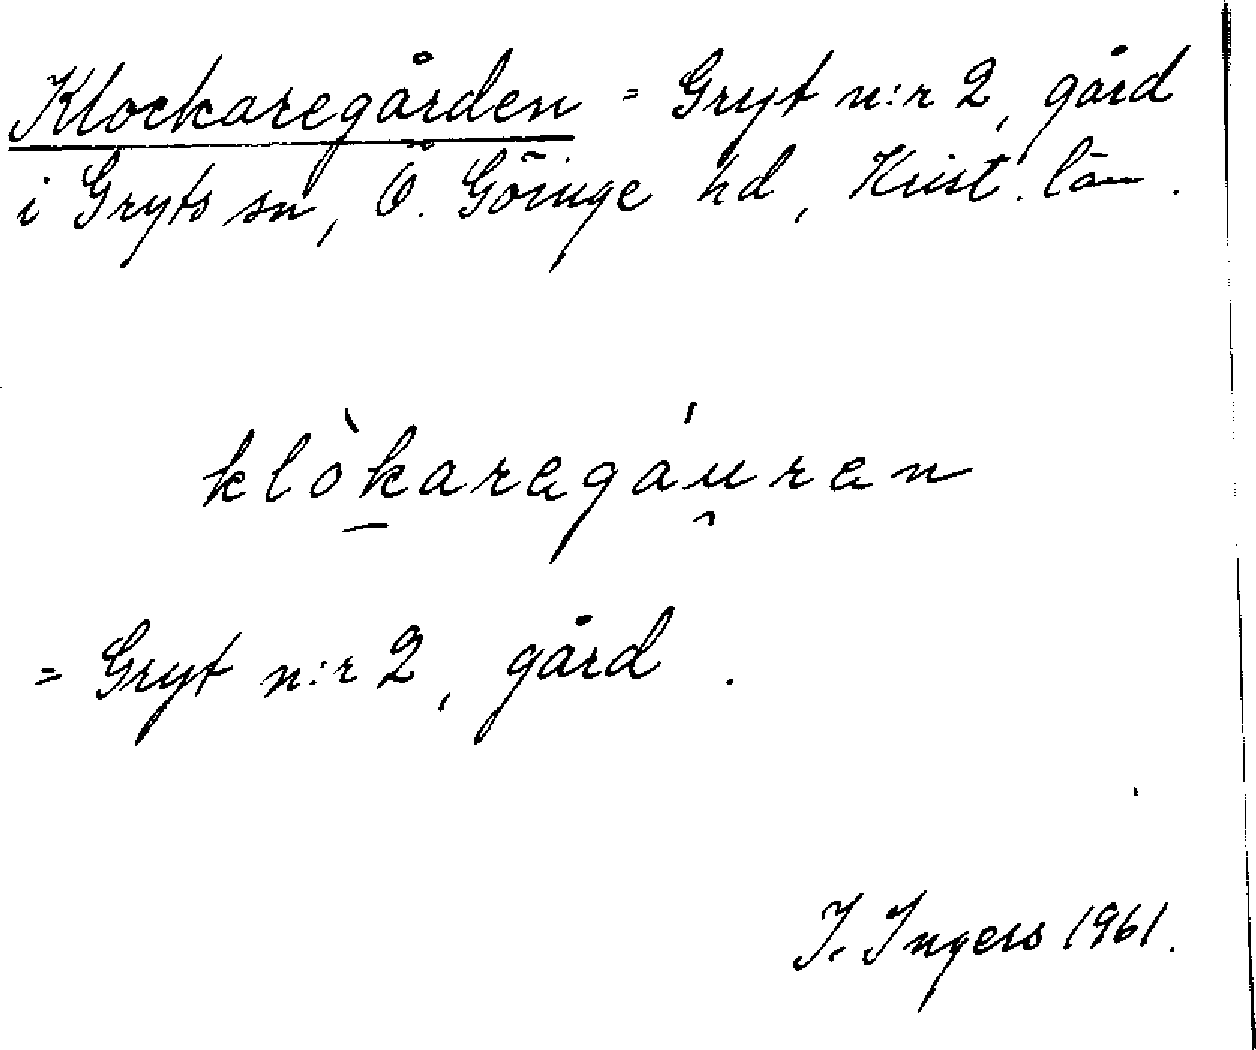 Klockaregården = Gryt n:r 2, gård
i Gryts sn, Ö. Göinge hd, Krist. län.
klòkaregáu̯ren
= Gryt n:r 2, gård.
I. Ingers 1961.